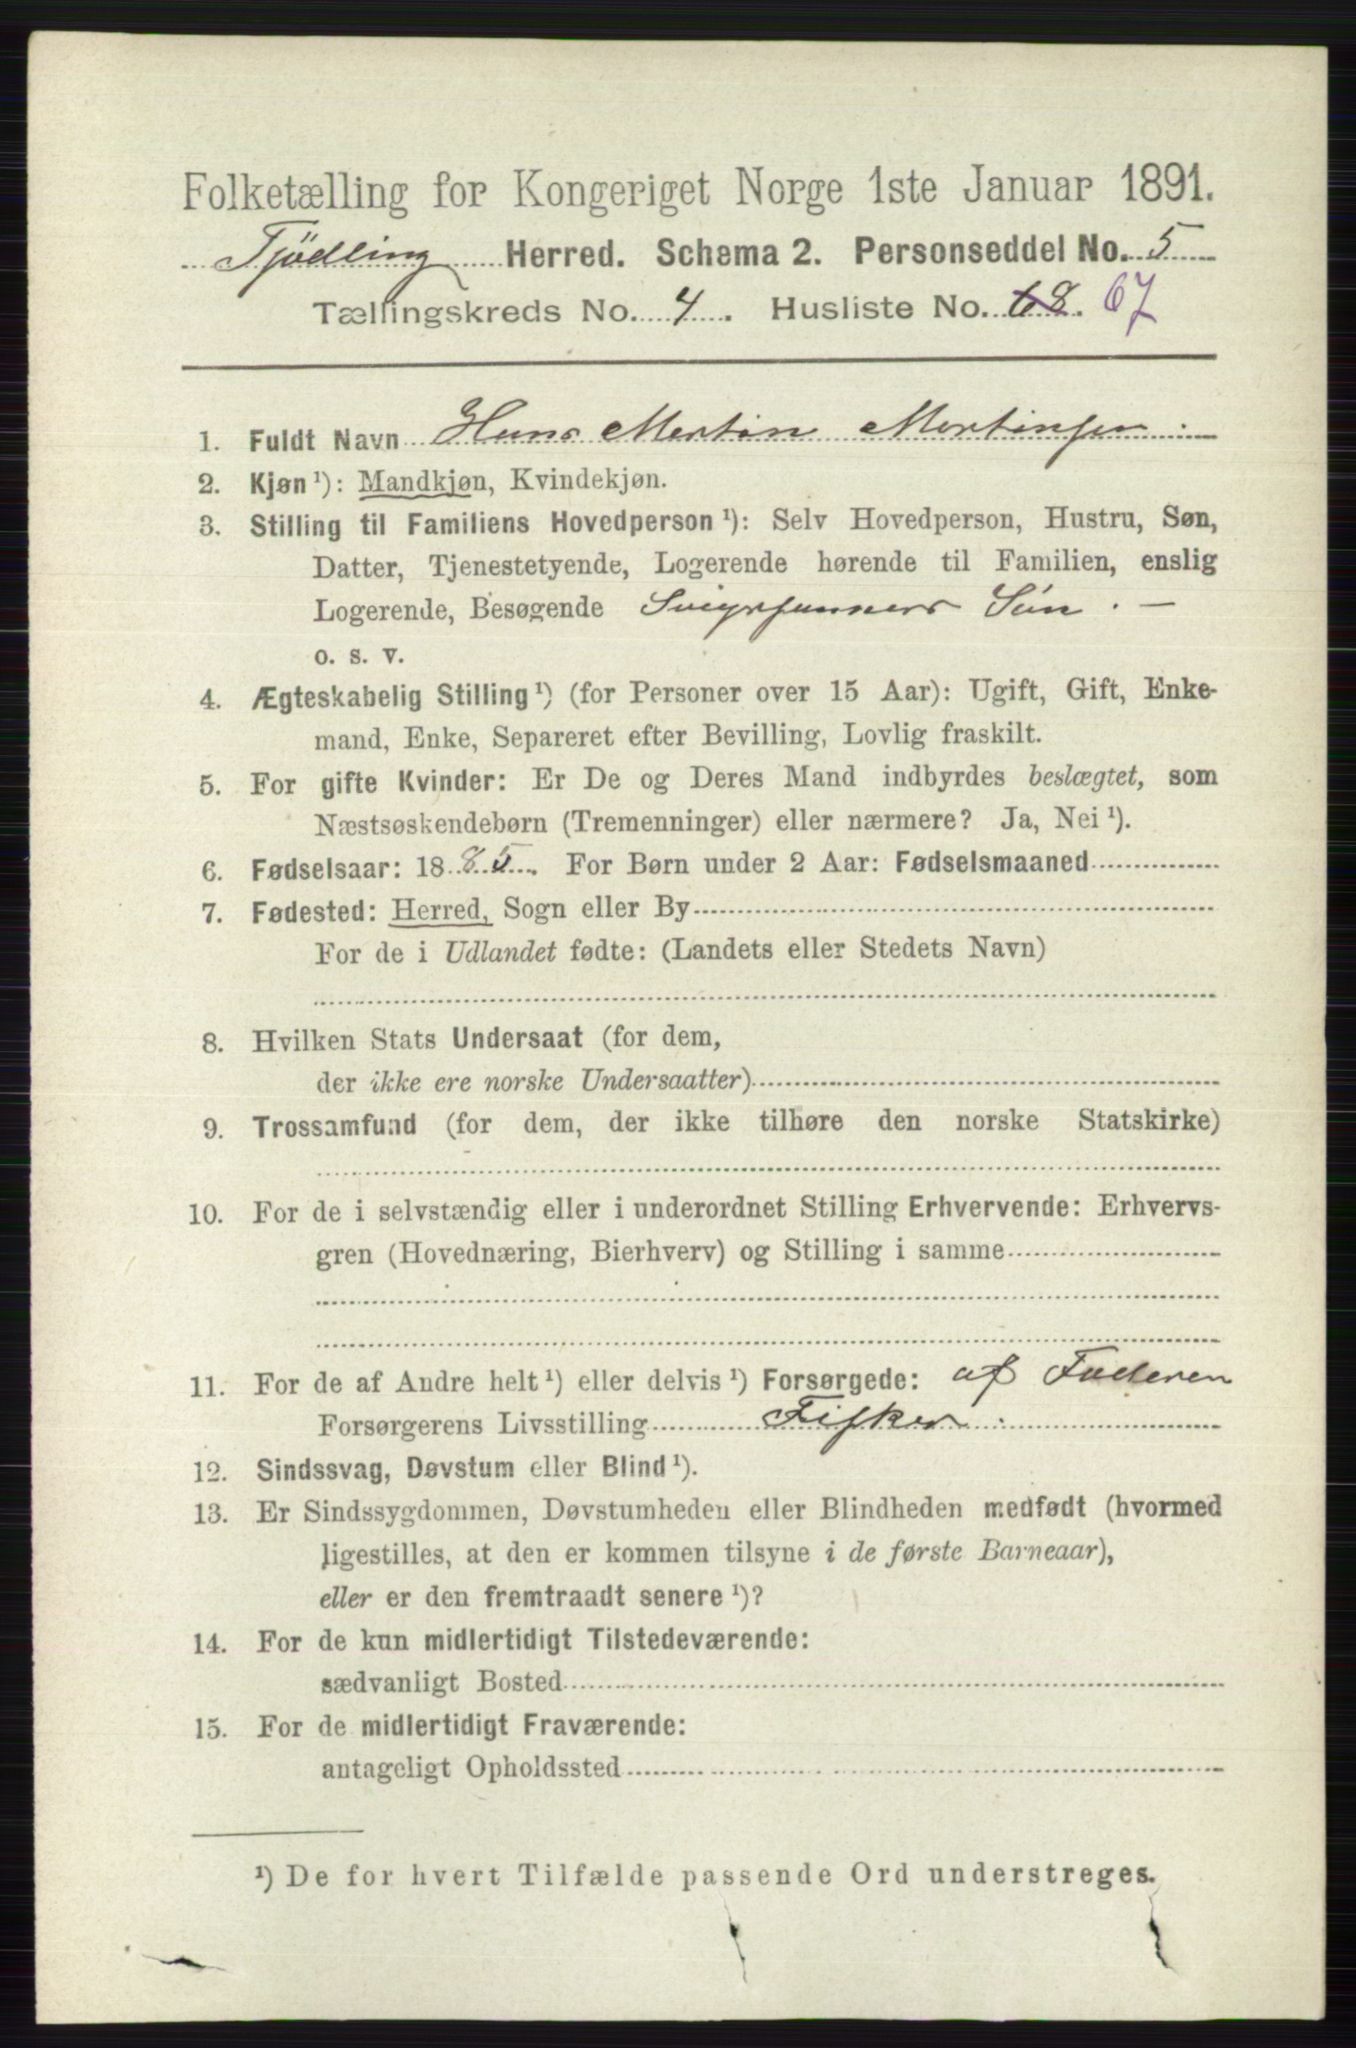 Folketælling for Kongeriget Norge 1ste Januar 1891.
Tjödling Herred. Schema 2. Personseddel No. 5
Tællingskreds No. 4. Husliste No. 68. 67
1. Fuldt Navn Hans Martin Martinsen.
2. Kjøn ¹): Mandkjøn, Kvindekjøn.
3. Stilling til Familiens Hovedperson ¹): Selv Hovedperson, Hustru, Søn,
Datter, Tjenestetyende, Logerende hørende til Familien, enslig
Logerende, Besøgende Svigersønnens Sön. —
o. s. v.
4. Ægteskabelig Stilling ¹) (for Personer over 15 Aar): Ugift, Gift, Enke-
mand, Enke, Separeret efter Bevilling, Lovlig fraskilt.
5. For gifte Kvinder: Er De og Deres Mand indbyrdes beslægtet, som
Næstsøskendebørn (Tremenninger) eller nærmere? Ja, Nei ¹).
6. Fødselsaar: 1885. For Børn under 2 Aar: Fødselsmaaned
7. Fødested: Herred, Sogn eller By
For de i Udlandet fødte: (Landets eller Stedets Navn)
8. Hvilken Stats Undersaat (for dem,
der ikke ere norske Undersaatter)
9. Trossamfund (for dem, der ikke tilhøre den norske Statskirke)
10. For de i selvstændig eller i underordnet Stilling Erhvervende: Erhvervs-
gren (Hovednæring, Bierhverv) og Stilling i samme
11. For de af Andre helt ¹) eller delvis ¹) Forsørgede: af Faderen
Forsørgerens Livsstilling Fisker.
12. Sindssvag, Døvstum eller Blind ¹).
13. Er Sindssygdommen, Døvstumheden eller Blindheden medfødt (hvormed
ligestilles, at den er kommen tilsyne i de første Barneaar),
eller er den fremtraadt senere ¹)?
14. For de kun midlertidigt Tilstedeværende:
sædvanligt Bosted
15. For de midlertidigt Fraværende:
antageligt Opholdssted
¹) De for hvert Tilfælde passende Ord understreges.